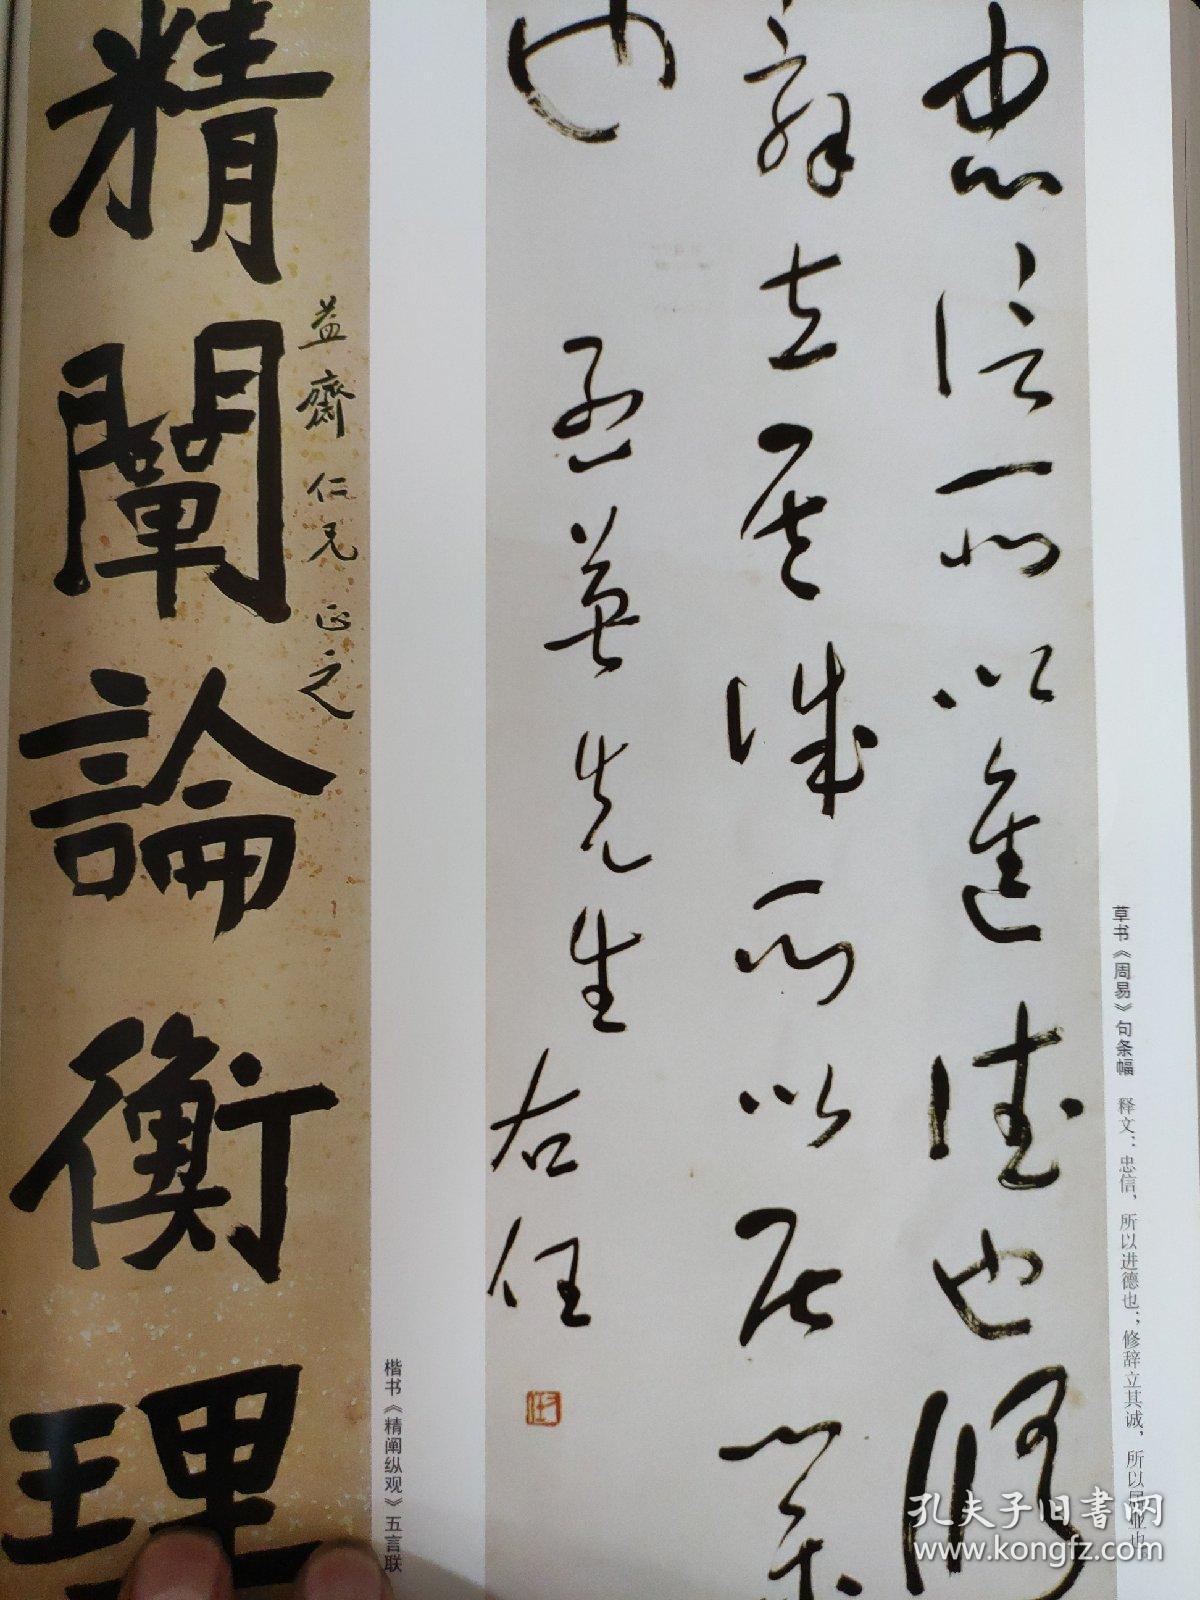 草书《周易》句条幅 释文：忠信，所以进德也；修辞立其诚，所以居业也
忠信所以進德也脩
辭立其誠所以居業
也
先生 右任
楷书《精阐纵观》五言联
益齋仁兄正之
精闡論衡理
孔夫子旧書网
www.kongfz.com